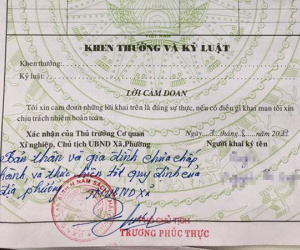 VIỆT NAM
KHEN THƯỞNG VÀ KỶ LUẬT
Khen thưởng:
Kỷ luật:
LỜI CAM ĐOAN
Tôi xin cam đoan những lời khai trên là đúng sự thực, nếu có điều gì khai man tôi xin
chịu trách nhiệm hoàn toàn.
Xác nhận của Thủ trưởng Cơ quan
Xí nghiệp, Chủ tịch UBND Xã, Phường
Ngày tháng năm 202
Người khai ký tên
Bản thân và gia đình chưa chấp
hành và thực hiện tốt quy định của
địa phương
TM UBND xã
CHỦ TỊCH
TRƯƠNG PHÚC THỰC